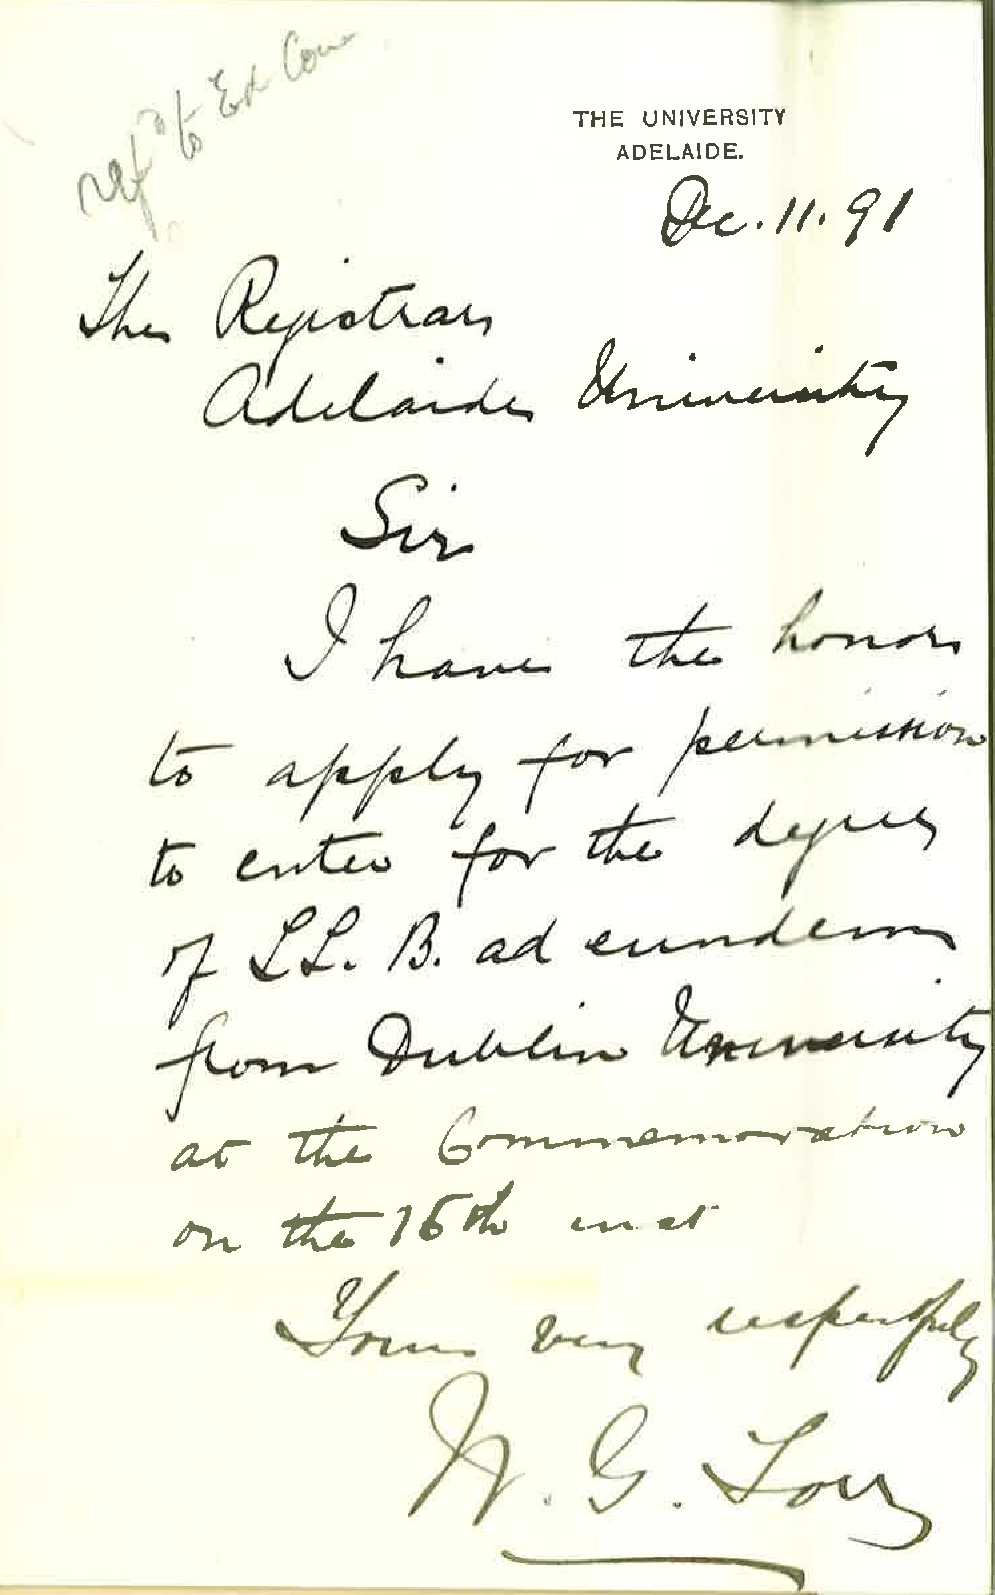 refd to Ex Com
THE UNIVERSITY
ADELAIDE.
Dec. 11. 91
The Registrar
Adelaide University
Sir
I have the honor
to apply for permission
to enter for the degree
of LL. B. ad eundem
from Dublin University
at the Commemoration
on the 16th inst
Yours very respectfully
W. G. Torr